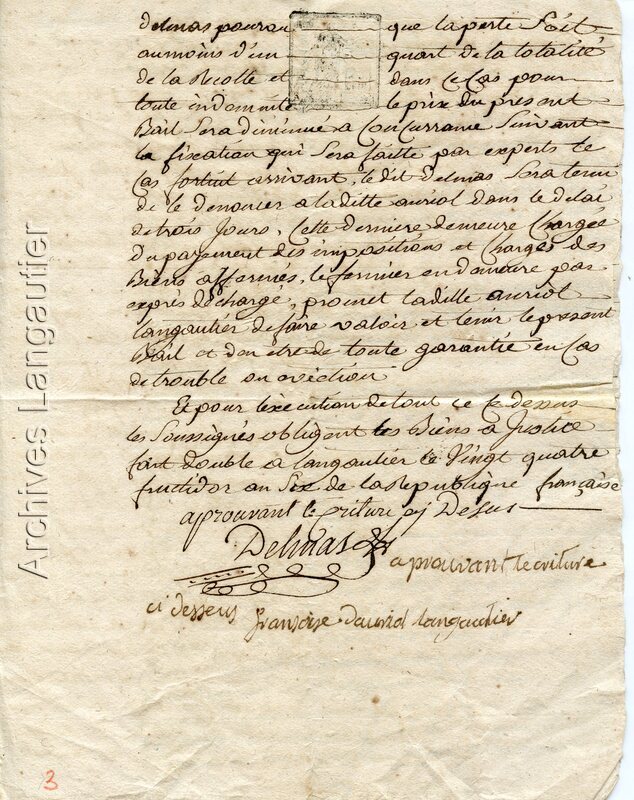 delmas pourvu que la perte soit
au moins d'un quart de la totalité
de la Recolte et dans ce Cas pour
toute indamnité le prix du présent
Bail sera diminué a Concurrame suivant
la fixation qui sera faitte par experts le
Cas fortuit arrivant, le dit delmas sera tenu
de le denoncer a laditte auriol dans le delai
de trois jours, Cette derniere demeure Chargée
du payement des impositions et Charges des
Biens affermés, le fermier en demeure par
exprés déchargé, promet laditte auriol
langautier de faire valoir et tenir le présent
Bail et d'en être de toute garantie en Cas
de trouble ou eviction
Et pour l'exécution de tout ce Ce dessus
les soussignés obligent les Biens a Justice
fait double a langautier le Vingt quatre
fructidor an Six de la Republique française
aprouvant lecriture ci Desus
Delmas
aprouvant lecriture
ci desseus fransoise dauriol langautier
Archives Langautier
3